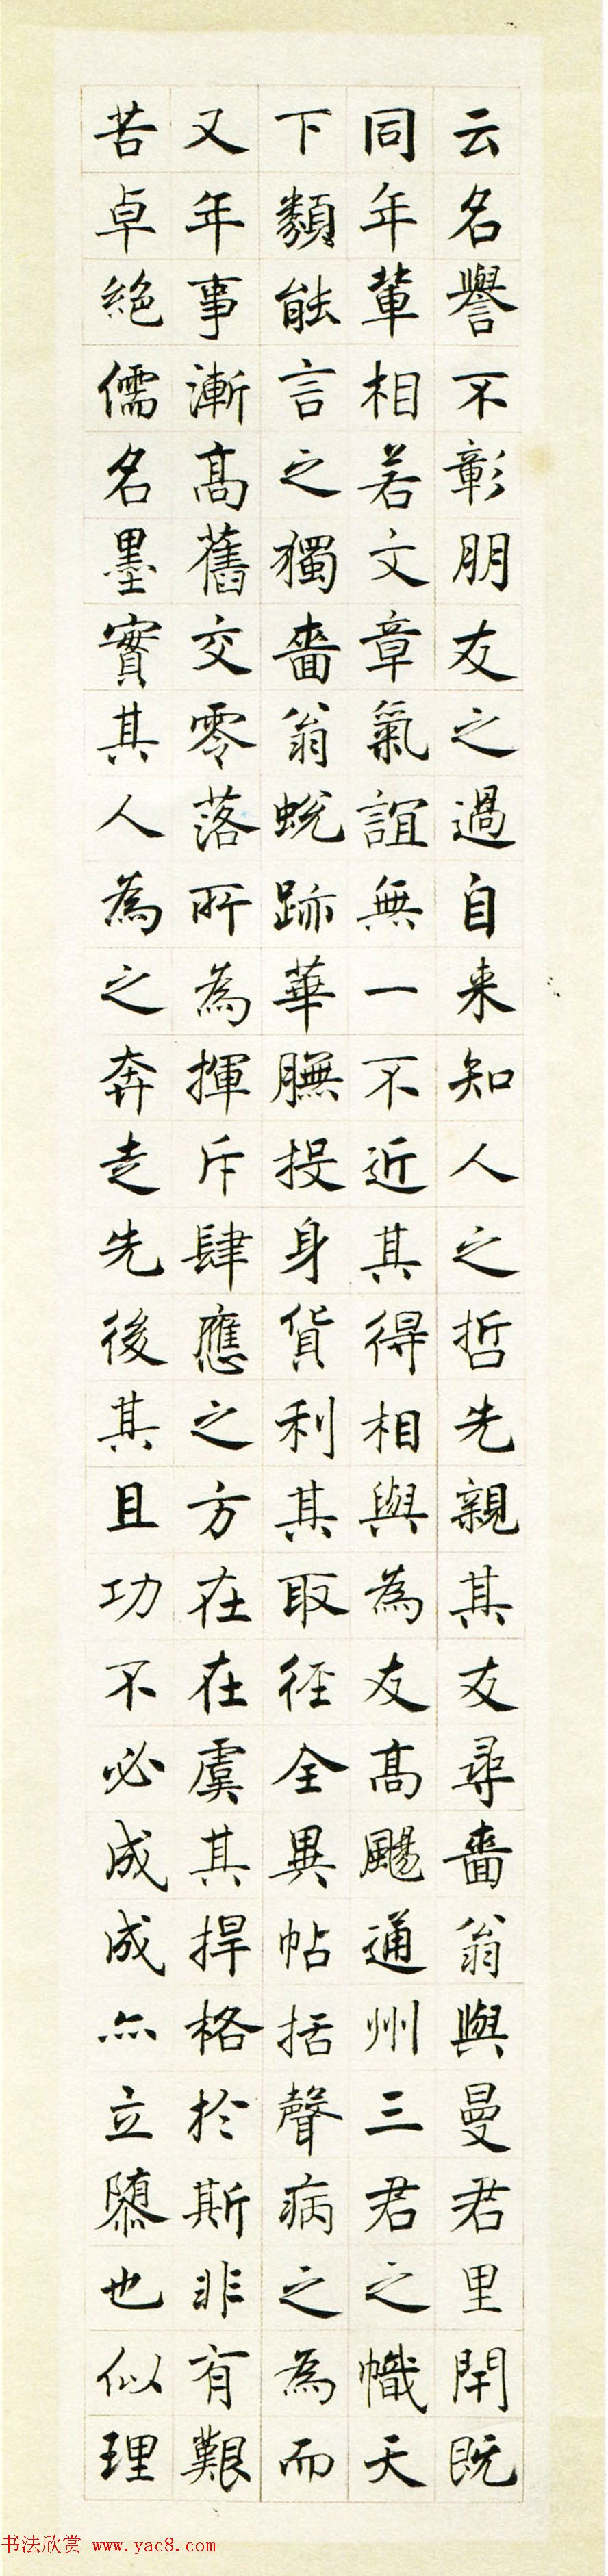 云名譽不彰朋友之過自来知人之哲先親其友尋嗇翁與曼君里閈既
同年輩相若文章氣誼無一不近其得相與為友高颺通州三君之幟天
下類能言之獨嗇翁蛻跡華膴投身貨利其取径全異帖括聲病之為而
又年事漸高舊交零落所為揮斥肆應之方在在虞其捍格於斯非有艱
苦卓絶儒名墨實其人為之奔走先後其且功不必成成亦立隳也似理
书法欣赏 www.yac8.com